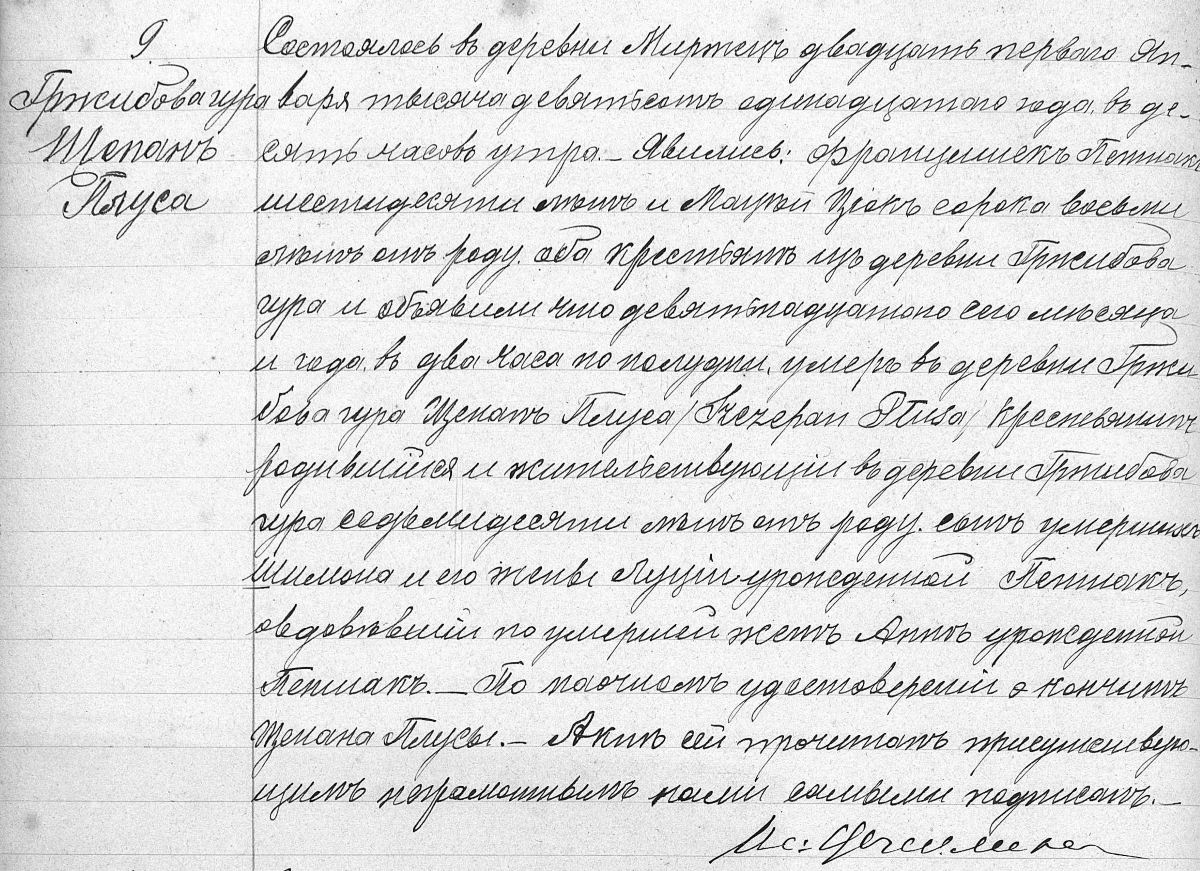 9.
Гржибовагура
Щепанъ
Плуса
Состоялось въ деревни Миржецъ двадцать перваго Ян-
варя тысяча девятьсотъ одинадцатаго года, въ де-
сять часовъ утра.— Явились: Францишекъ Пешакъ
шестидесяти лѣтъ и Мацѣй Цiокъ сорока восьми
лѣтъ отъ роду, оба крестьяне изъ деревни Гржибова
гура и объявили что девятьнадцатого сего мѣсяца
и года, въ два часа по полудни, умеръ въ деревни Гржи-
бова гура Щепанъ Плуса /Szczepan Płusa/ крестьянинъ
родившійся и жительствующій въ деревни Гржибова
гура седьмидесяти лѣтъ отъ роду, сынъ умершихъ
Шимона и его жены Луціи урожденной Пешакъ,
овдовѣвшій по умершей женѣ Аннѣ урожденной
Пешакъ.— По наочномъ удостовереніи о кончинѣ
Щепана Плусы.— Актъ сей прочитанъ присутствую-
щимъ неграмотнымъ нами самыми подписанъ.—